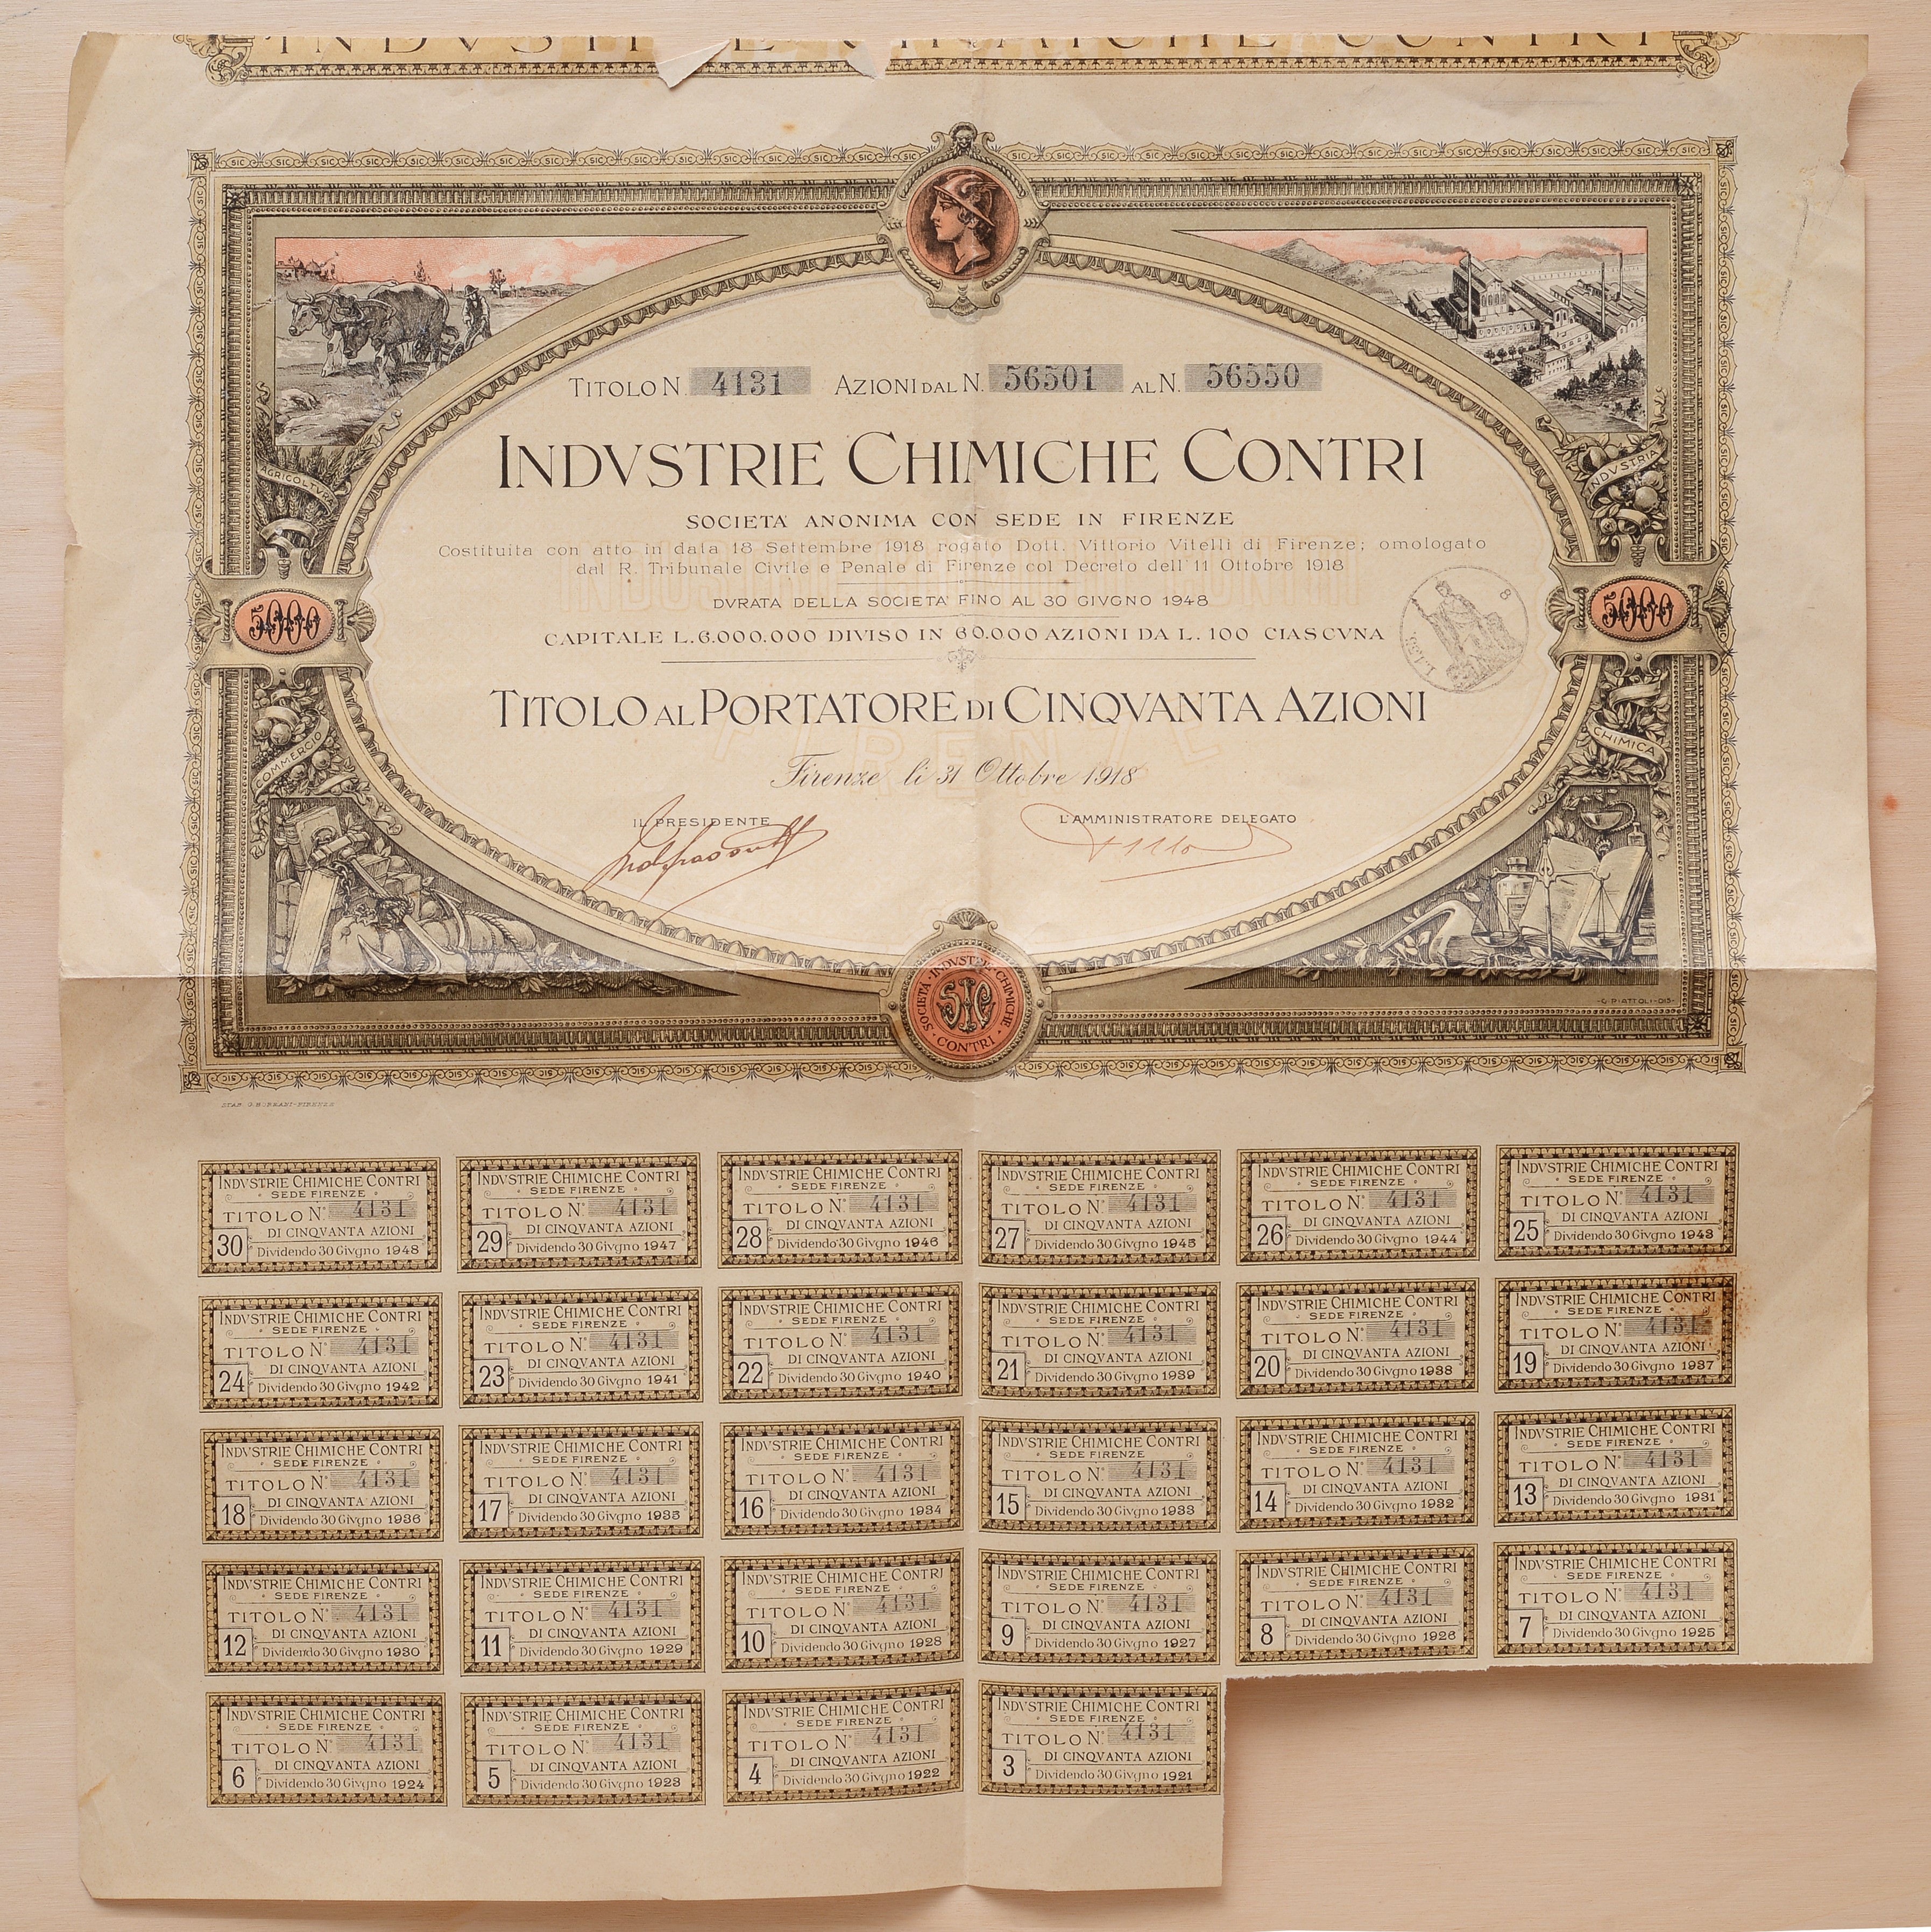 INDVSTRIE CHIMICHE CONTRI
TITOLO N. 4131 AZIONI DAL N. 56501 AL N. 56550
INDVSTRIE CHIMICHE CONTRI
SOCIETA' ANONIMA CON SEDE IN FIRENZE
Costituita con atto in data 18 Settembre 1918 rogato Dott. Vittorio Vitelli di Firenze; omologato
dal R. Tribunale Civile e Penale di Firenze col Decreto dell'11 Ottobre 1918
DVRATA DELLA SOCIETA' FINO AL 30 GIVGNO 1948
CAPITALE L. 6.000.000 DIVISO IN 60.000 AZIONI DA L. 100 CIASCVNA
TITOLO AL PORTATORE DI CINQVANTA AZIONI
Firenze li 31 Ottobre 1918
IL PRESIDENTE
L'AMMINISTRATORE DELEGATO
AGRICOLTVRA
INDVSTRIA
5000
5000
COMMERCIO
CHIMICA
SIC
SOCIETÀ INDVSTRIE CHIMICHE CONTRI
INDUSTRIE CHIMICHE CONTRI
FIRENZE
G. PIATTOLI DIS.
STAB. G. BORRANI-FIRENZE
INDVSTRIE CHIMICHE CONTRI
SEDE FIRENZE
TITOLO N.° 4131
DI CINQVANTA AZIONI
30 Dividendo 30 Givgno 1948
INDVSTRIE CHIMICHE CONTRI
SEDE FIRENZE
TITOLO N.° 4131
DI CINQVANTA AZIONI
29 Dividendo 30 Givgno 1947
INDVSTRIE CHIMICHE CONTRI
SEDE FIRENZE
TITOLO N.° 4131
DI CINQVANTA AZIONI
28 Dividendo 30 Givgno 1946
INDVSTRIE CHIMICHE CONTRI
SEDE FIRENZE
TITOLO N.° 4131
DI CINQVANTA AZIONI
27 Dividendo 30 Givgno 1945
INDVSTRIE CHIMICHE CONTRI
SEDE FIRENZE
TITOLO N.° 4131
DI CINQVANTA AZIONI
26 Dividendo 30 Givgno 1944
INDVSTRIE CHIMICHE CONTRI
SEDE FIRENZE
TITOLO N.° 4131
DI CINQVANTA AZIONI
25 Dividendo 30 Givgno 1943
INDVSTRIE CHIMICHE CONTRI
SEDE FIRENZE
TITOLO N.° 4131
DI CINQVANTA AZIONI
24 Dividendo 30 Givgno 1942
INDVSTRIE CHIMICHE CONTRI
SEDE FIRENZE
TITOLO N.° 4131
DI CINQVANTA AZIONI
23 Dividendo 30 Givgno 1941
INDVSTRIE CHIMICHE CONTRI
SEDE FIRENZE
TITOLO N.° 4131
DI CINQVANTA AZIONI
22 Dividendo 30 Givgno 1940
INDVSTRIE CHIMICHE CONTRI
SEDE FIRENZE
TITOLO N.° 4131
DI CINQVANTA AZIONI
21 Dividendo 30 Givgno 1939
INDVSTRIE CHIMICHE CONTRI
SEDE FIRENZE
TITOLO N.° 4131
DI CINQVANTA AZIONI
20 Dividendo 30 Givgno 1938
INDVSTRIE CHIMICHE CONTRI
SEDE FIRENZE
TITOLO N.° 4131
DI CINQVANTA AZIONI
19 Dividendo 30 Givgno 1937
INDVSTRIE CHIMICHE CONTRI
SEDE FIRENZE
TITOLO N.° 4131
DI CINQVANTA AZIONI
18 Dividendo 30 Givgno 1936
INDVSTRIE CHIMICHE CONTRI
SEDE FIRENZE
TITOLO N.° 4131
DI CINQVANTA AZIONI
17 Dividendo 30 Givgno 1935
INDVSTRIE CHIMICHE CONTRI
SEDE FIRENZE
TITOLO N.° 4131
DI CINQVANTA AZIONI
16 Dividendo 30 Givgno 1934
INDVSTRIE CHIMICHE CONTRI
SEDE FIRENZE
TITOLO N.° 4131
DI CINQVANTA AZIONI
15 Dividendo 30 Givgno 1933
INDVSTRIE CHIMICHE CONTRI
SEDE FIRENZE
TITOLO N.° 4131
DI CINQVANTA AZIONI
14 Dividendo 30 Givgno 1932
INDVSTRIE CHIMICHE CONTRI
SEDE FIRENZE
TITOLO N.° 4131
DI CINQVANTA AZIONI
13 Dividendo 30 Givgno 1931
INDVSTRIE CHIMICHE CONTRI
SEDE FIRENZE
TITOLO N.° 4131
DI CINQVANTA AZIONI
12 Dividendo 30 Givgno 1930
INDVSTRIE CHIMICHE CONTRI
SEDE FIRENZE
TITOLO N.° 4131
DI CINQVANTA AZIONI
11 Dividendo 30 Givgno 1929
INDVSTRIE CHIMICHE CONTRI
SEDE FIRENZE
TITOLO N.° 4131
DI CINQVANTA AZIONI
10 Dividendo 30 Givgno 1928
INDVSTRIE CHIMICHE CONTRI
SEDE FIRENZE
TITOLO N.° 4131
DI CINQVANTA AZIONI
9 Dividendo 30 Givgno 1927
INDVSTRIE CHIMICHE CONTRI
SEDE FIRENZE
TITOLO N.° 4131
DI CINQVANTA AZIONI
8 Dividendo 30 Givgno 1926
INDVSTRIE CHIMICHE CONTRI
SEDE FIRENZE
TITOLO N.° 4131
DI CINQVANTA AZIONI
7 Dividendo 30 Givgno 1925
INDVSTRIE CHIMICHE CONTRI
SEDE FIRENZE
TITOLO N.° 4131
DI CINQVANTA AZIONI
6 Dividendo 30 Givgno 1924
INDVSTRIE CHIMICHE CONTRI
SEDE FIRENZE
TITOLO N.° 4131
DI CINQVANTA AZIONI
5 Dividendo 30 Givgno 1923
INDVSTRIE CHIMICHE CONTRI
SEDE FIRENZE
TITOLO N.° 4131
DI CINQVANTA AZIONI
4 Dividendo 30 Givgno 1922
INDVSTRIE CHIMICHE CONTRI
SEDE FIRENZE
TITOLO N.° 4131
DI CINQVANTA AZIONI
3 Dividendo 30 Givgno 1921